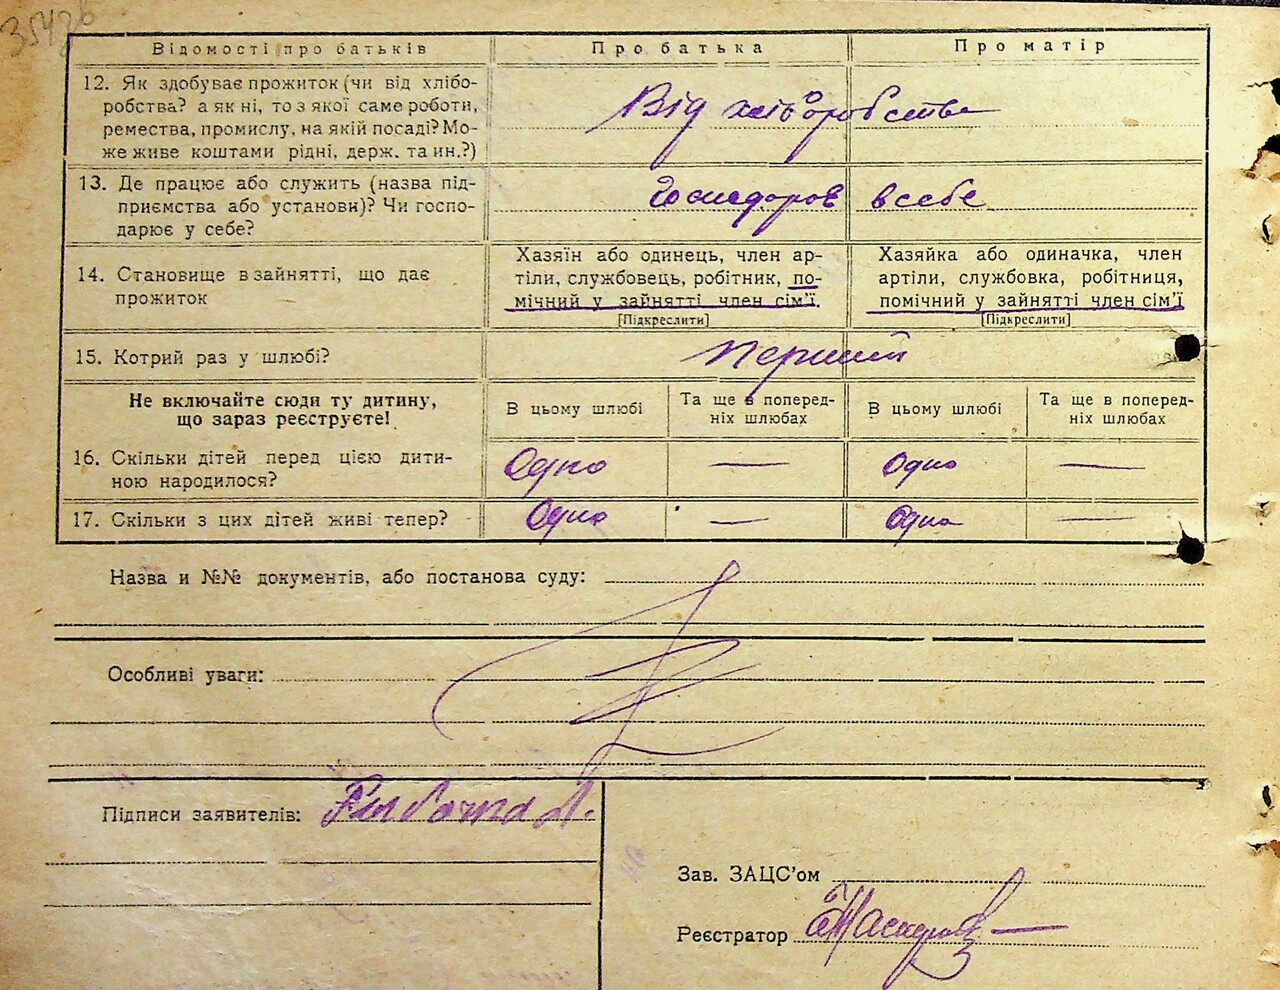 3542в
Відомості про батьків
Про батька
Про матір
12. Як здобуває прожиток (чи від хлібо-
робства? а як ні, то з якої саме роботи,
ремества, промислу, на якій посаді? Мо-
же живе коштами рідні, держ. та ин.?)
Від хліборобства
13. Де працює або служить (назва під-
приємства або установи)? Чи госпо-
дарює у себе?
в себе
14. Становище в зайнятті, що дає
прожиток
Хазяїн або одинець, член ар-
тіли, службовець, робітник, по-
мічний у зайнятті член сім'ї.
[Підкреслити]
Хазяйка або одиначка, член
артіли, службовка, робітниця,
помічний у зайнятті член сім'ї
[Підкреслити]
15. Котрий раз у шлюбі?
перший
Не включайте сюди ту дитину,
що зараз реєструєте!
В цьому шлюбі
Та ще в поперед-
ніх шлюбах
В цьому шлюбі
Та ще в поперед-
ніх шлюбах
16. Скільки дітей перед цією дити-
ною народилося?
Одно
—
Одно
—
17. Скільки з цих дітей живі тепер?
Одно
—
Одно
—
Назва и №№ документів, або постанова суду:
Особливі уваги:
Підписи заявителів:
Зав. ЗАЦС'ом
Реєстратор